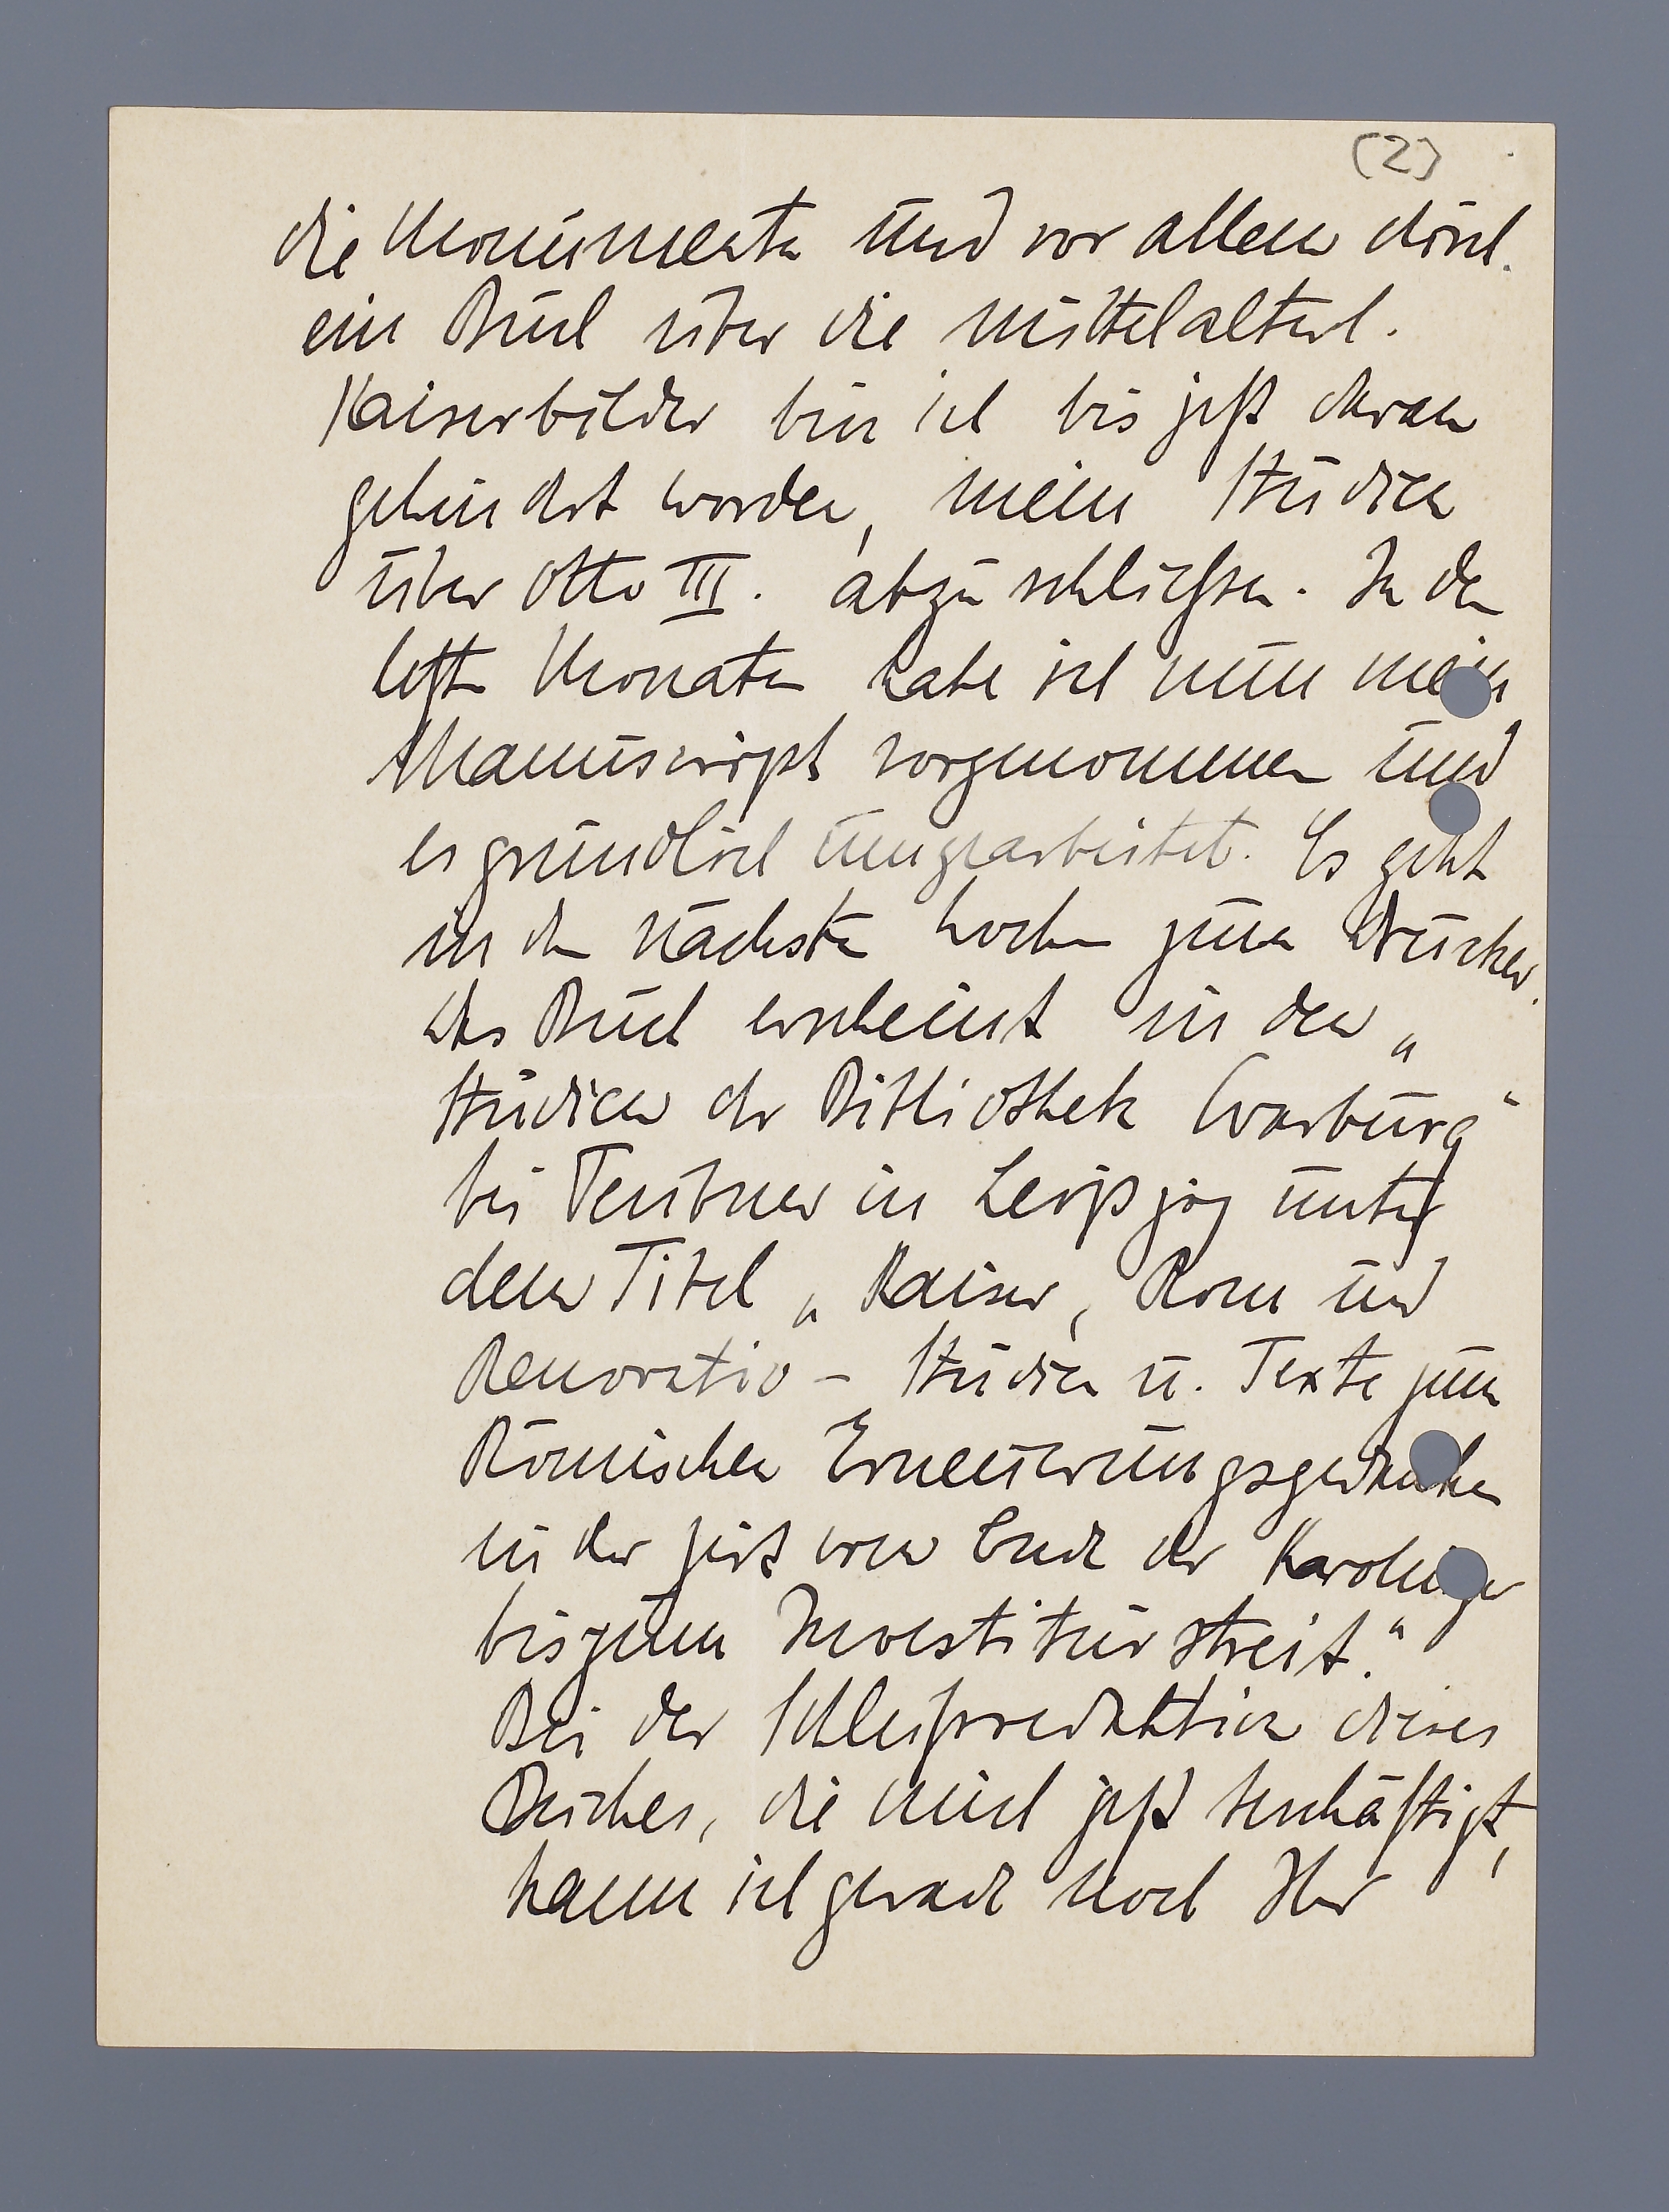 (2)
die Monumenta und vor allem durch
ein Buch über die mittelalterl.
Kaiserbilder bin ich bis jetzt daran
gehindert worden, mein Studien
über Otto III. abzuschliessen. In den
letzten Monaten habe ich nun mein
Manuscript vorgenommen und
es gründlich umgearbeitet. Es geht
in den nächsten Wochen zum Drucker.
Das Buch erscheint in den „
Studien der Bibliothek Warburg“
bei Teubner in Leipzig unter
dem Titel „Kaiser, Rom und
Renovatio – Studien u. Texte zum
Römischen Erneuerungsgedanken
in der Zeit vom Ende der Karolinger
bis zum Investiturstreit.“
Bei der Schlussredaktion dieses
Buches, die mich jetzt beschäftigt,
kann ich gerade noch Ihr